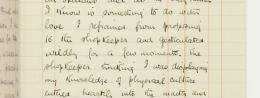 I know is something to do with
love I refrained from proposing
to the shopkeeper and gesticulated
wildly for a few moments. The
shopkeeper thinking I was displaying
my knowledge of physical culture
enters heartily into the and